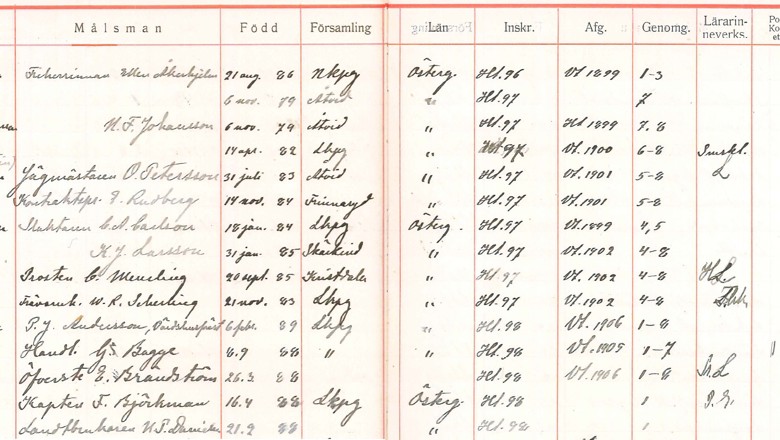 Målsman Född Församling Län Inskr. Afg. Genomg. Lärarin-neverks.
Ellen Åkerhjelm 21 aug. 86 Nkpg Österg. Ht. 96 Vt 1899 1-3
6 nov. 79 Åtvid " Ht. 97 7
N. F. Johansson 6 nov. 79 Åtvid " Ht. 97 Ht 1899 7, 8
14 apr. 82 Lkpg " Ht 97 Vt. 1900 6-8
Jägmästaren O. Petersson 31 juli 83 Åtvid " Ht. 97 Vt. 1901 5-8 L
E. Rudberg 14 nov. 84 " Ht. 97 Vt. 1901 5-8
C. A. Carlson 18 jan. 84 Lkpg Österg. Ht. 97 Vt. 1899 4, 5
K. J. Larsson 31 jan. 85 Skärkind " Ht. 97 Vt. 1902 4-8
Prosten C. 20 sept. 85 " Ht 97 Vt. 1902 4-8
W. R. Scherling 21 nov. 83 Lkpg " Ht. 97 Vt. 1902 4-8
P. J. Andersson, 89 Lkpg " Ht. 98 Vt. 1906 1-8
Handl. Gs. Bagge 8.9 88 " " Ht. 98 Vt. 1905 1-7 "
Öfverste E. Brändström 26.3 88 Ht. 98 Vt. 1906 1-8
Kapten F. Björkman 16.4 88 Lkpg Österg. Ht. 98 1
21.2 88 " Ht. 98 1